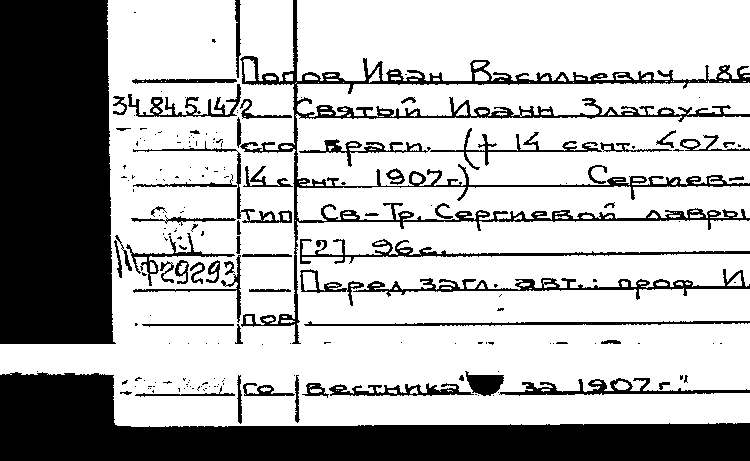 Попов, Иван Васильевич, 186
34.84.5.1472 Святый Иоанн Златоуст
его враги. († 14 сент. 407г.
14 сент. 1907г.) Сергиев-
тип. Св-Тр. Сергиевой лавры
[2], 96с.
Мф29293
Перед загл. авт.: проф. И.
пов.
го вестника" за 1907 г."